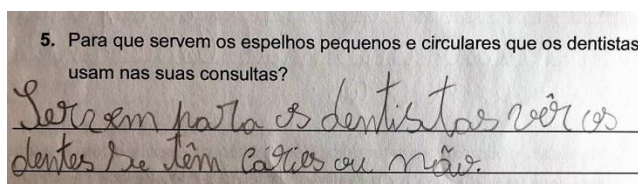 5. Para que servem os espelhos pequenos e circulares que os dentistas
usam nas suas consultas?
Servem para os dentistas vêr os
dentes se têm caries ou não.